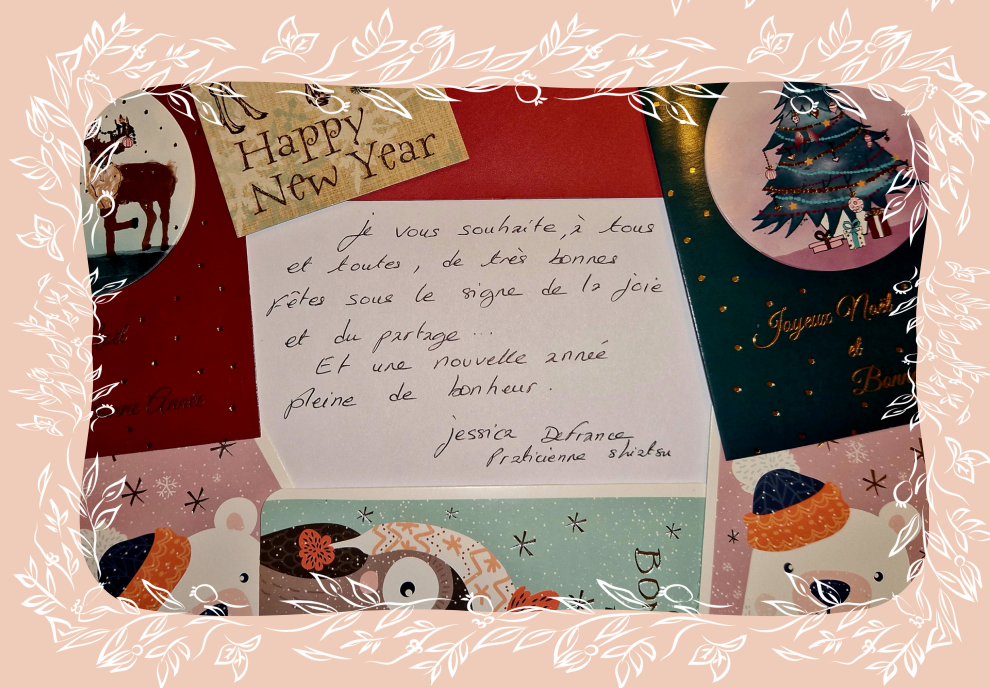 Happy
New Year
Je vous souhaite, à tous
et toutes, de très bonnes
fêtes sous le signe de la joie
et du partage ...
Et une nouvelle année
pleine de bonheur.
Jessica Defrance
Praticienne shiatsu
Joyeux Noël
et
Bonn
nne Année
Bon